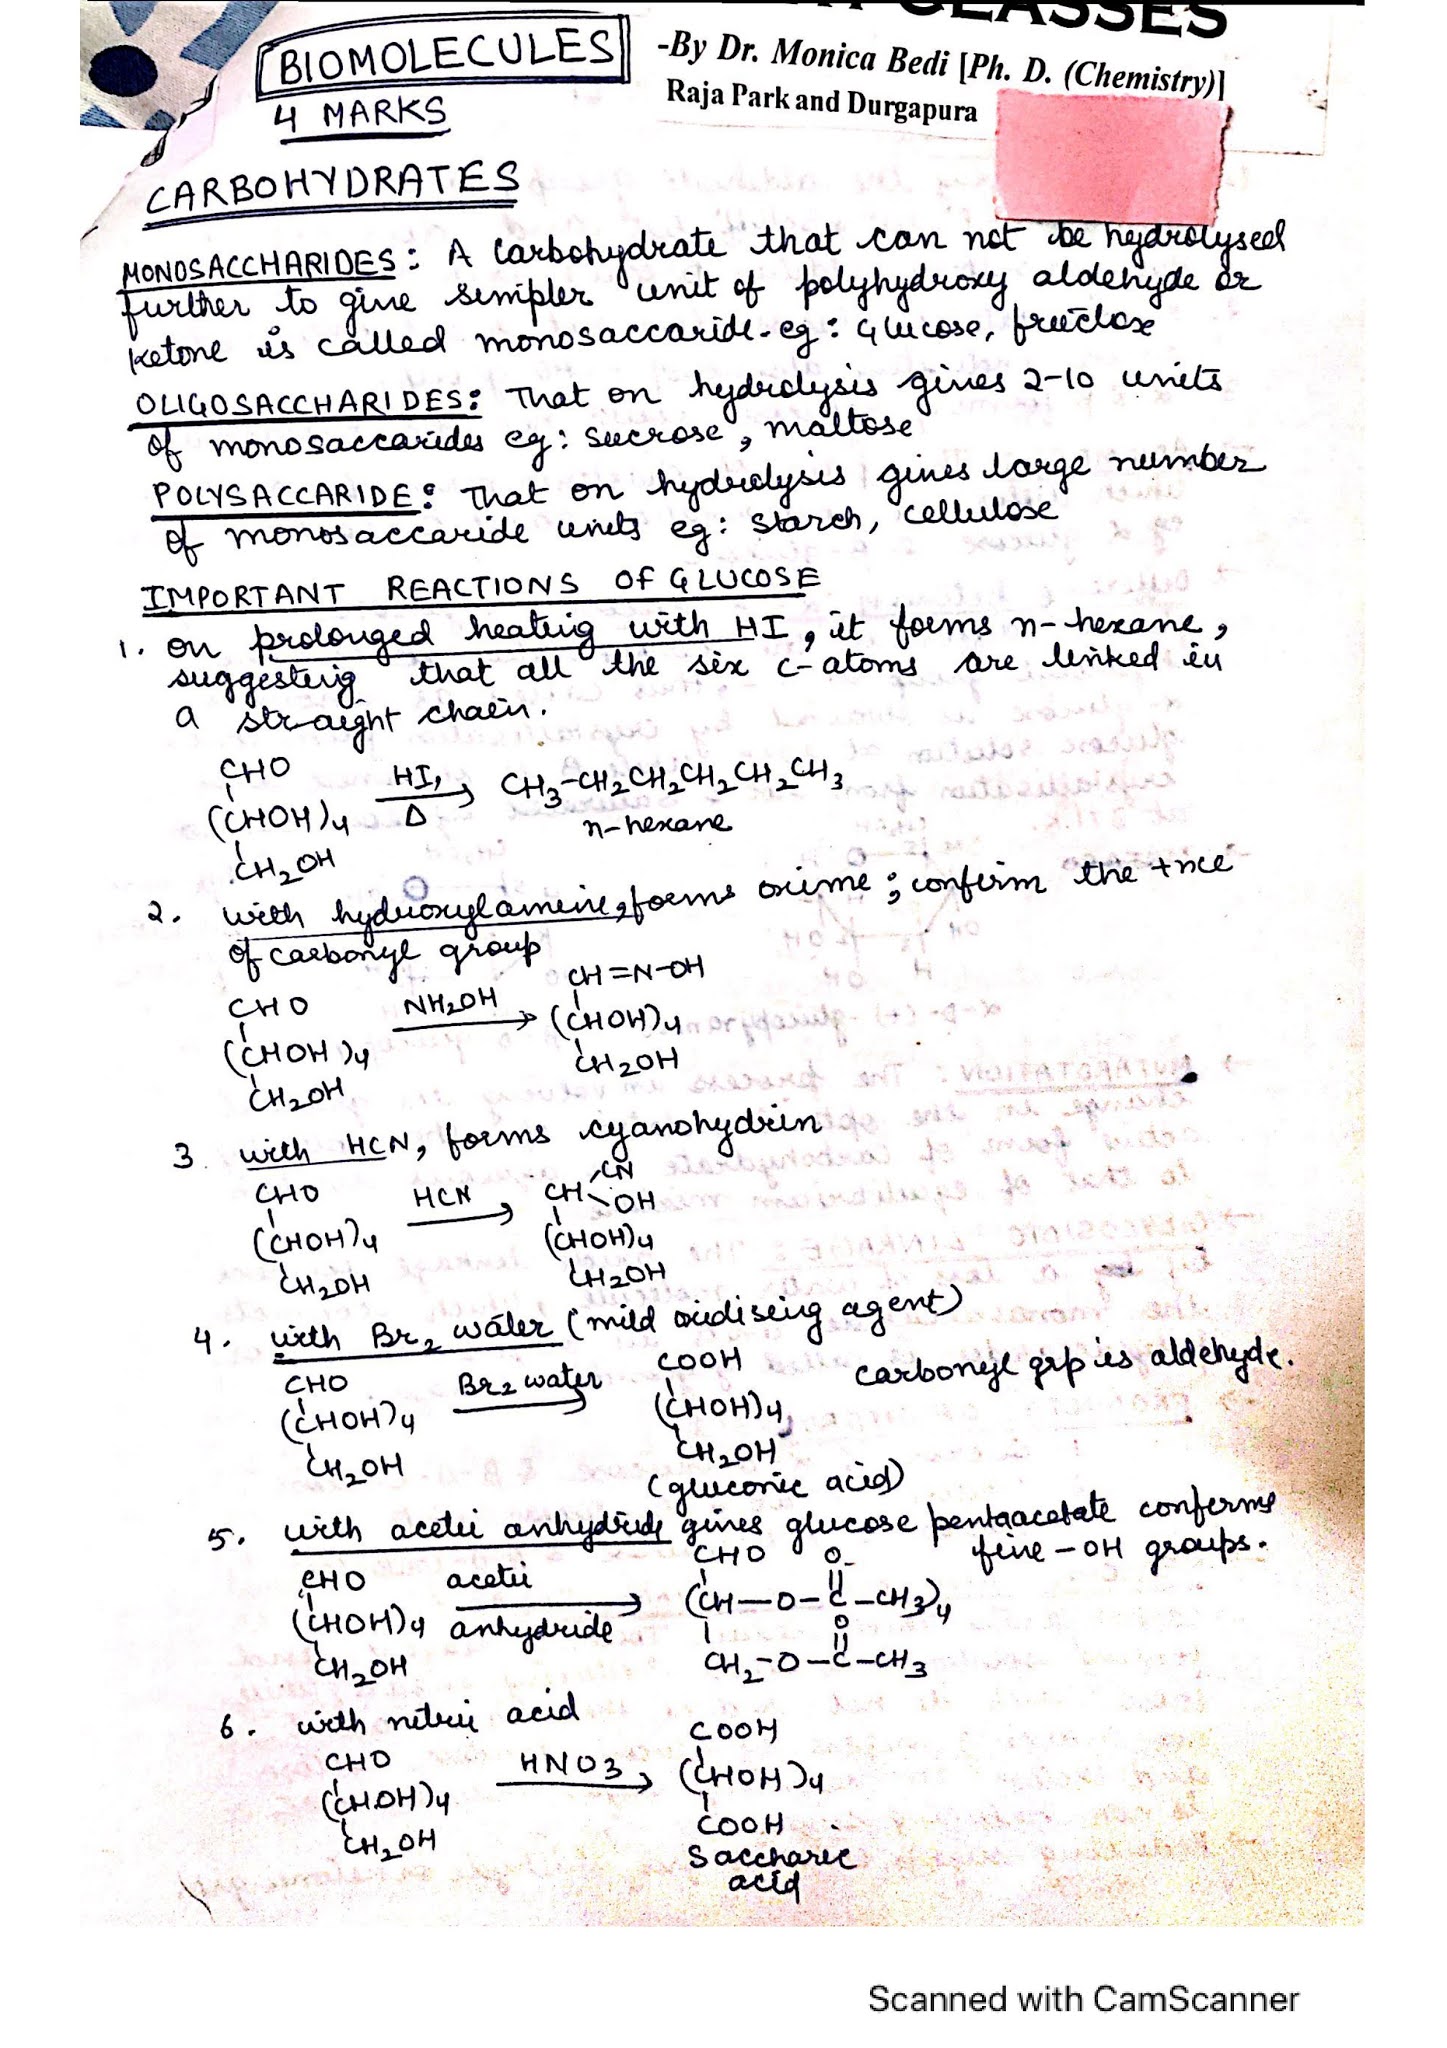 CLASSES
BIOMOLECULES
-By Dr. Monica Bedi [Ph. D. (Chemistry)]
Raja Park and Durgapura
4 MARKS
CARBOHYDRATES
MONOSACCHARIDES: A Carbohydrate that can not be hydrolysed
further to give simpler unit of polyhydroxy aldehyde or
ketone is called monosaccaride. eg: Glucose, fructose
OLIGOSACCHARIDES: That on hydrolysis gives 2-10 units
of monosaccarides eg: sucrose, maltose
POLYSACCARIDE: That on hydrolysis gives large number
of monosaccaride units eg: starch, cellulose
IMPORTANT REACTIONS OF GLUCOSE
1. on prolonged heating with HI, it forms n-hexane,
suggesting that all the six C-atoms are linked in
a straight chain.
CHO
(CHOH)4 HI, Δ → CH3-CH2CH2CH2CH2CH3
CH2OH n-hexane
2. with hydroxylamine, forms oxime; confirm the +nce
of carbonyl group
CHO NH2OH → CH=N-OH
(CHOH)4 (CHOH)4
CH2OH CH2OH
3. with HCN, forms cyanohydrin
CHO HCN → CH CN OH
(CHOH)4 (CHOH)4
CH2OH CH2OH
4. with Br2 water (mild oxidising agent)
CHO Br2 water → COOH carbonyl grp is aldehyde.
(CHOH)4 (CHOH)4
CH2OH CH2OH
(gluconic acid)
5. with acetic anhydride gives glucose pentaacetate conferms
five -OH groups.
CHO acetic anhydride → CHO
(CHOH)4 (CH-O-C-CH3)4 O
CH2OH CH2-O-C-CH3 O
6. with nitric acid
CHO HNO3 → COOH
(CHOH)4 (CHOH)4
CH2OH COOH
Saccharic
acid
Scanned with CamScanner